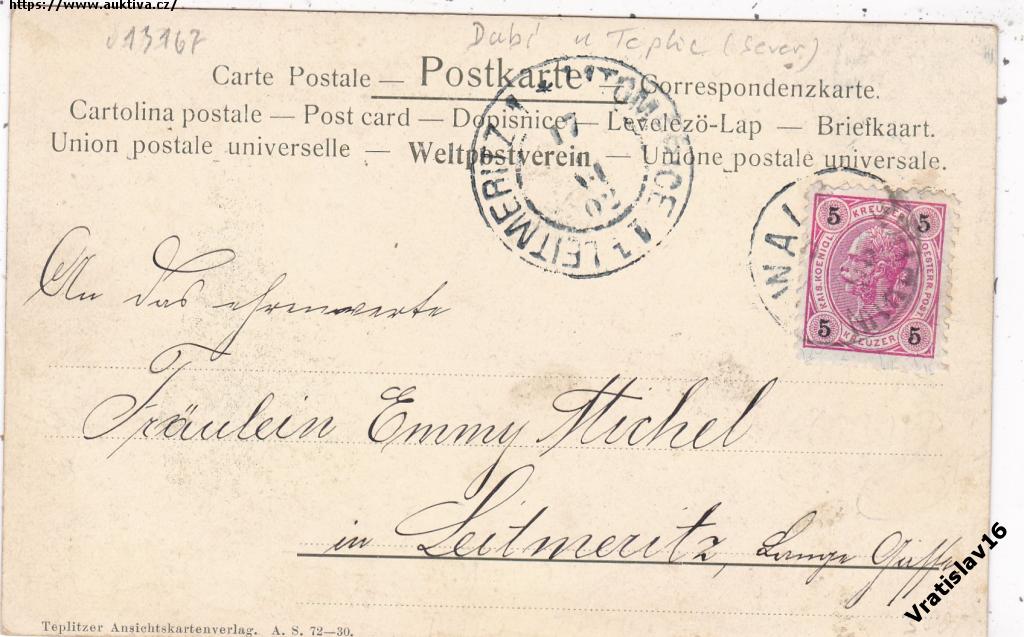 https://www.auktiva.cz/
v13167
Dubí u Teplic (sever)
Carte Postale — Postkarte — Correspondenzkarte.
Cartolina postale — Post card — Dopisnice — Levelezö-Lap — Briefkaart.
Union postale universelle — Weltpostverein — Unione postale universale.
LEITMERITZ 1 * LITOMĚŘICE 1
17
02
INAL
5 KREUZER 5
KAIS. KOENIGL. OESTERR. POST
5 KREUZER 5
An das ehrenwerte
Fräulein Emmy Michel
in Leitmeritz, Lange Gasse
Vratislav16
Teplitzer Ansichtskartenverlag. A. S. 72—30.